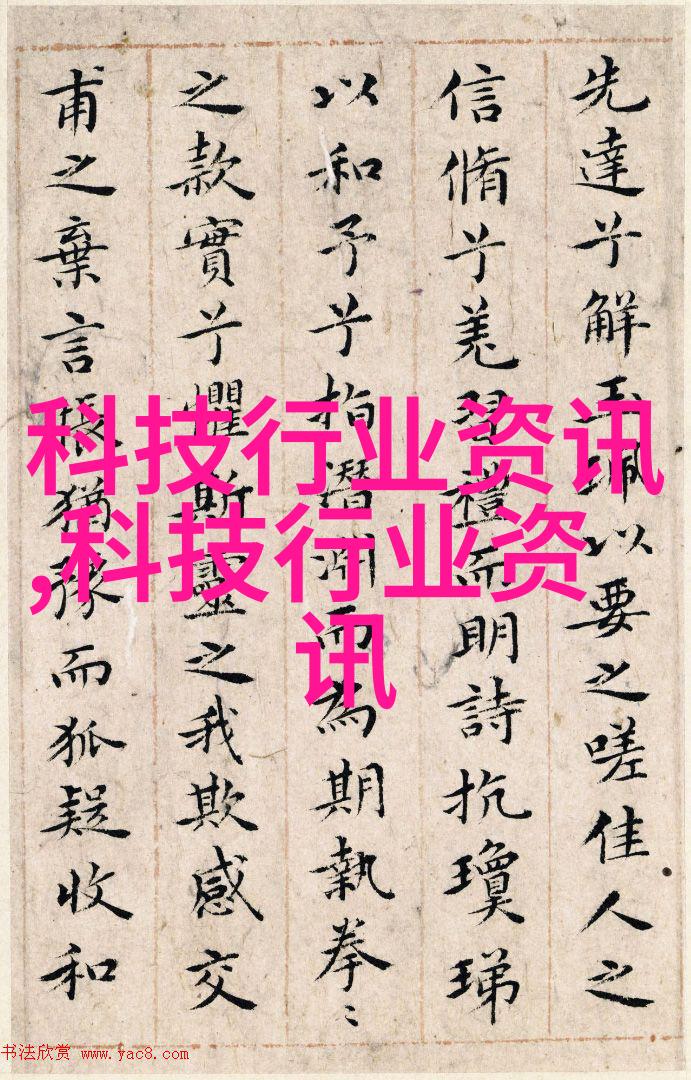 先達兮解玉珮以要之嗟佳人之
信脩兮羌習禮而明詩抗瓊珶
以和予兮指潛淵而為期執拳〻
之款實兮懼斯靈之我欺感交
甫之棄言悵猶豫而狐疑收和
科技行业资讯
,科技行业资
讯
书法欣赏 www.yac8.com